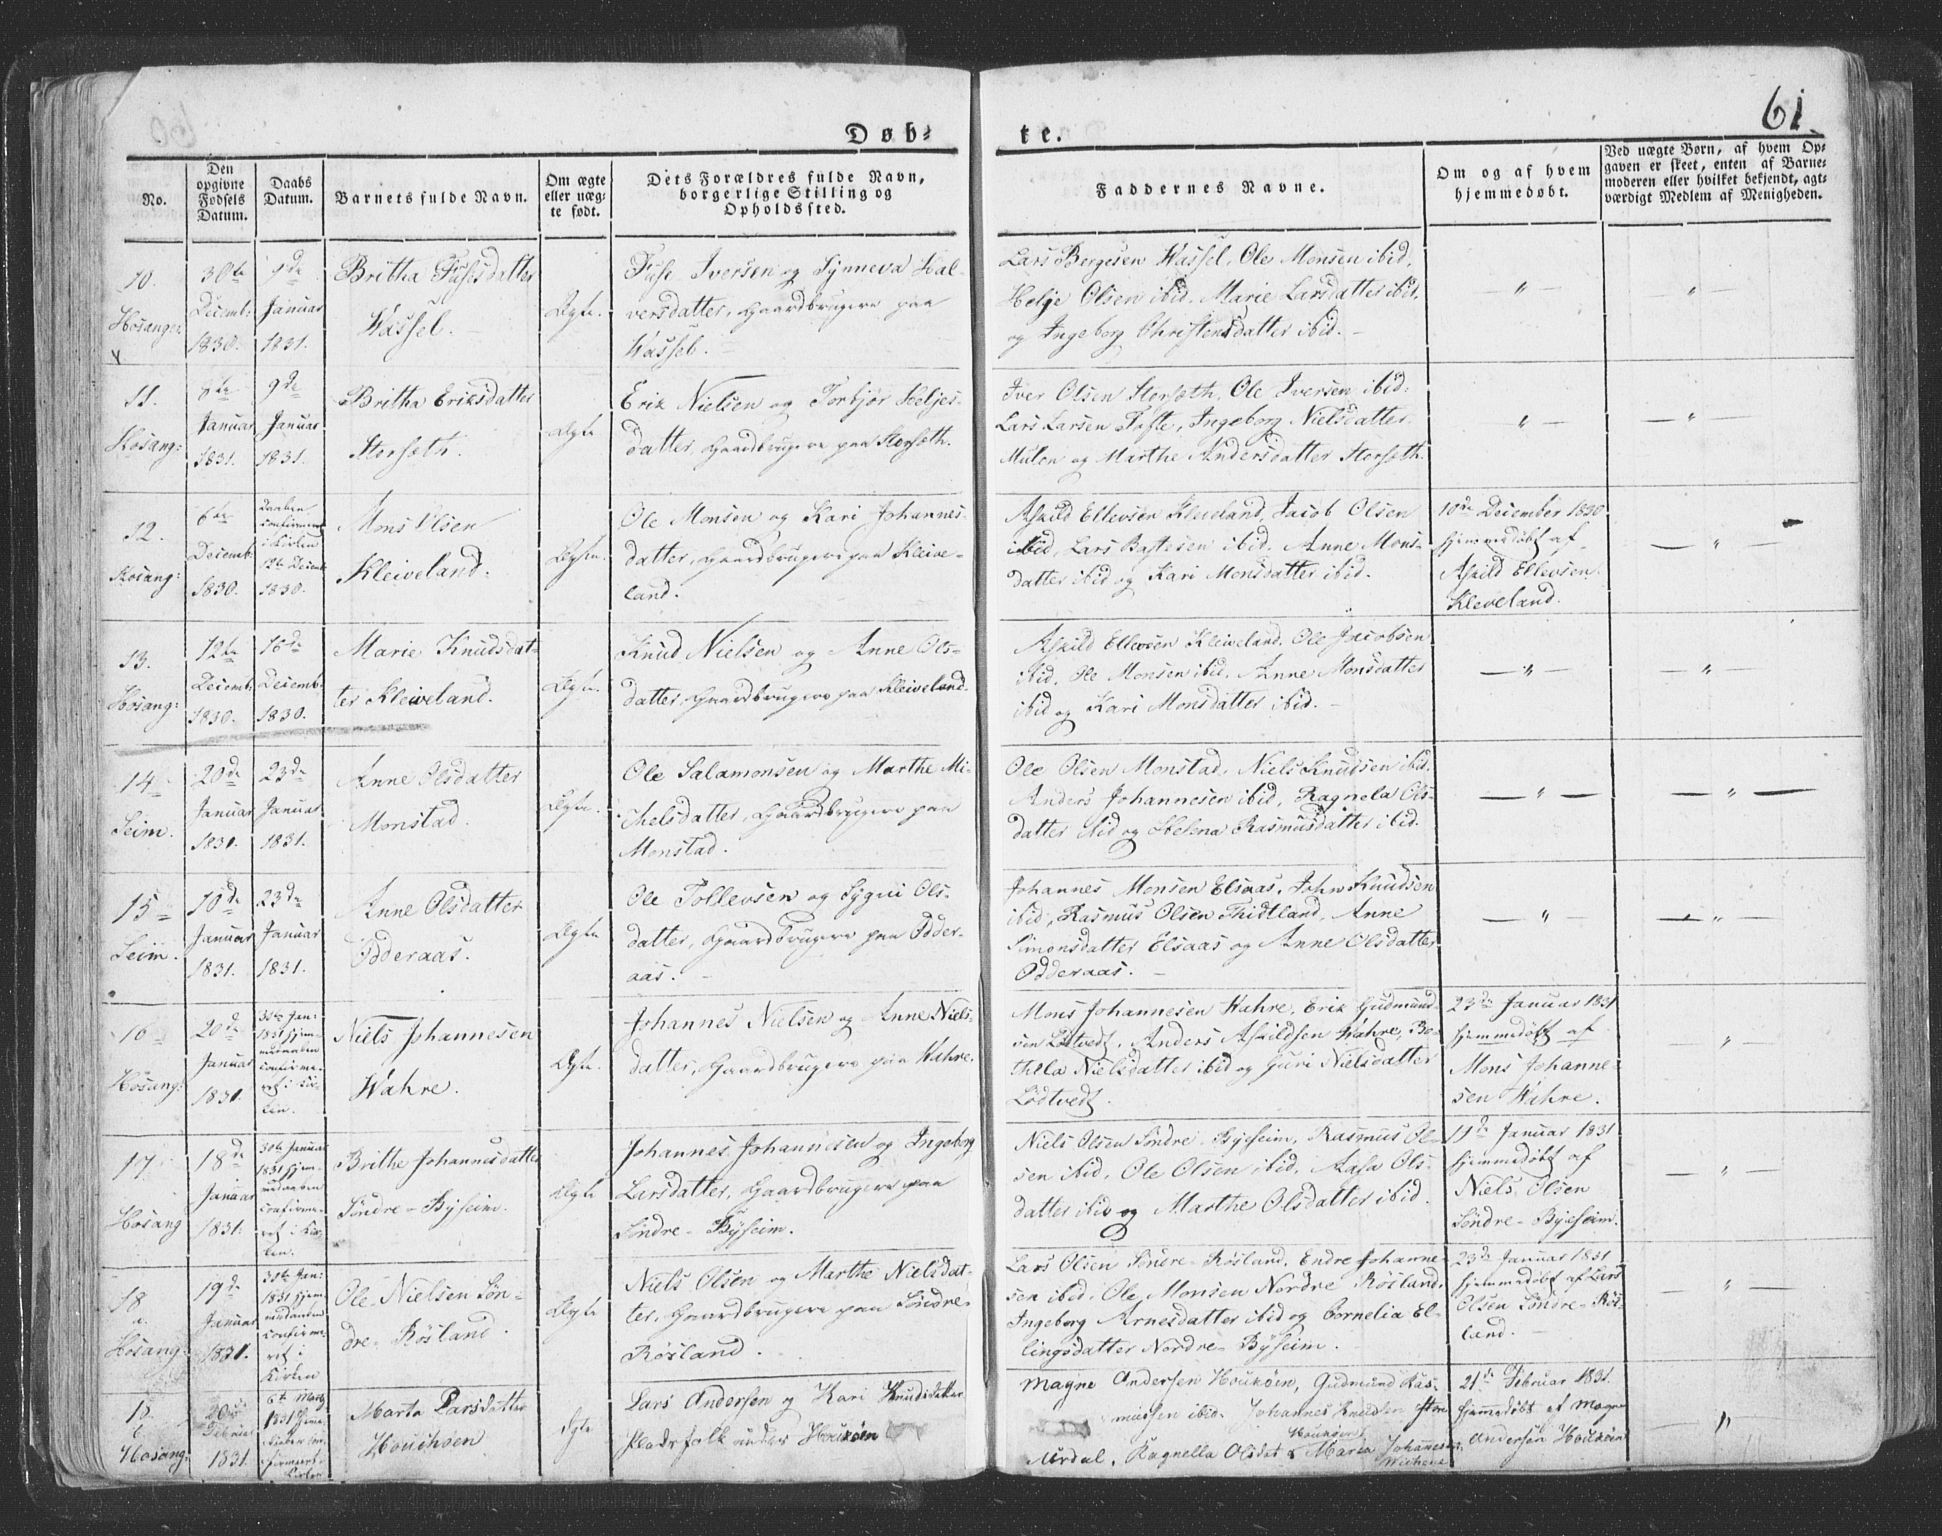 61.
Døb-
te.
No.
Den
opgivne
Fødsels
Datum.
Daabs
Datum.
Barnets fulde Navn.
Om ægte
eller uæg-
te født.
Dets Forældres fulde Navn,
borgerlige Stilling og
Opholdssted.
Faddernes Navne.
Om og af hvem
hjemmedøbt.
Ved uægte Børn, af hvem Op-
gaven er skeet, enten af Barne-
moderen eller hvilket bekjendt, agt-
værdigt Medlem af Menigheden.
10.
Hosang:
30te
Decemb:
1830.
9de
Januar
1831.
Britha Fusesdatter
Wassel.
Ægte.
Fuse Iversen og Synneva Hal-
versdatter, Gaardbrugere paa
Wassel.
Lars Bergesen Wassel, Ole Monsen ibid,
Helje Olsen ibid, Marie Larsdatter ibid,
og Ingeborg Christensdatter ibid.
— " —
— " —
11.
Hosang:
Januar
1831.
9de
Januar
1831.
Britha Eriksdatter
Storsæth.
Ægte
Erik Nielsen og Torbjør Heljes-
datter, Gaardbrugere paa Storsæth.
Iver Olsen Storsæth, Ole Iversen ibid:
Lars Larsen Tofte, Ingeborg Nielsdatter
Mulen og Marthe Andersdatter Storsæth.
— " —
— " —
12.
Hosang:
6te
Decemb:
1830.
Daaben
confirmeret
i Kirken
Decemb:
1830.
Mons Olsen
Kleiveland.
Ægte.
Ole Monsen og Kari Johannes-
datter, Gaardbrugere paa Kleive-
land.
Askild Ellevsen Kleiveland, Jacob Olsen
ibid, Lars Bastesen ibid, Anne Mons-
datter ibid og Kari Monsdatter ibid.
10de December 1830
hjemmedøbt af
Askild Ellevsen
Kleveland.
— " —
13.
Hosang:
12te
Decemb:
1830.
16de
Decemb:
1830.
Marie Knudsdat-
ter Kleiveland.
Ægte.
Knud Nielsen og Anne Ols-
datter, Gaardbrugere paa Kleiveland.
Askild Ellevsen Kleiveland, Ole Jacobsen
ibid, Ole Monsen ibid, Anne Monsdatter
ibid og Kari Monsdatter ibid.
— " —
— " —
14
Seim.
20de
Januar
1831.
23de
Januar
1831.
Anne Olsdatter
Monstad.
Ægte.
Ole Salamonsen og Marthe Mi-
chelsdatter, Gaardbrugere paa
Monstad.
Ole Olsen Monstad, Niels Knudsen ibid,
Anders Johannesen ibid, Ragnela Ols-
datter ibid og Helena Rasmusdatter ibid.
— " —
— " —
15
Seim.
10de
Januar
1831.
23de
Januar
1831.
Anne Olsdatter
Odderaas.
Ægte
Ole Tollevsen og Sygni Ols-
datter, Gaardbrugere paa Odder-
aas.
Johannes Monsen Elsaas, John Knudsen
ibid, Rasmus Olsen Thidtland, Anne
Simonsdatter Elsaas og Anne Olsdatter
Odderaas.
— " —
— " —
16
Hosang:
20de
Januar
1831.
30te Jan:
1831 hjem-
medaaben
confirme-
ret i Kir-
ken.
Niels Johannesen
Wahre.
Ægte.
Johannes Nielsen og Anne Niels-
datter, Gaardbrugere paa Wahre.
Mons Johannesen Wahre, Erik Gudmund-
sen Lødtvedt, Anders Askildsen Wahre, Be-
thela Nielsdatter ibid og Guri Nielsdatter
Lødtvedt.
23de Januar 1831
hjemmedøbt af
Mons Johanne-
sen Wahre.
"
17.
Hosang
18de
Januar
1831.
30te Januar
1831 hjem-
medaaben
confirme-
ret i Kir-
ken.
Brithe Johannesdatter
Søndre-Byseim.
Ægte
Johannes Johannesen og Ingeborg
Larsdatter, Gaardbrugere paa
Søndre-Byseim.
Niels Olsen Søndre-Byseim, Rasmus Ol-
sen ibid, Ole Olsen ibid, Aasa Ols-
datter ibid og Marthe Olsdatter ibid.
Januar 1831
hjemmedøbt af
Niels Olsen
Søndre-Byeseim.
— " —
18
Hosang:
19de
Januar
1831.
30te Jan:
1831 hjem-
medaaben
confirme-
ret i
Kirken
Ole Nielsen Søn-
dre-Røsland.
Ægte
Niels Olsen og Marthe Nielsdat-
ter, Gaardbrugere paa Søndre-
Røsland.
Lars Olsen Søndre-Røsland, Endre Johanne-
sen ibid, Ole Monsen Nordre Røsland,
Ingeborg Arnesdatter ibid og Cornelia El-
lingsdatter Nordre-Byseim.
23de Januar 1831
hjemmedøbt af Lars
Olsen Søndre-Røs-
land.
"
Hosang:
20de
Februar
1831
6te Marts
1831
Marta Larsdatter
Houchøen
Ægte
Lars Andersen og Kari Knudsdatter
Pladsfolk under Houkøen
Magne Andersen Houkøen, Gudmund Ras-
mussen ibid. Johannes Knudsen Store
Urdal, Ragnella Olsdat Houkøen & Marta Johannesen
21de Februar 1831
hjemmedøbt af Magne
Andersen Houkøen
"